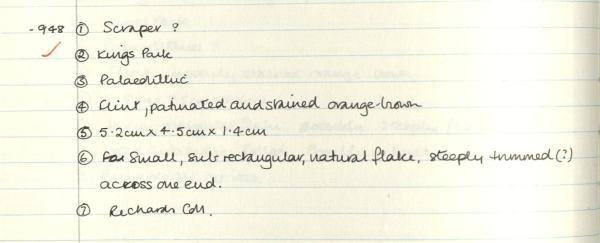 -948 ① Scraper ?
② Kings Park
③ Palaeolithic
④ Flint, patinated and stained orange-brown
⑤ 5.2cm x 4.5cm x 1.4cm
⑥ Small, sub rectangular, natural flake, steeply trimmed (?)
across one end.
⑦ Richards Coll.